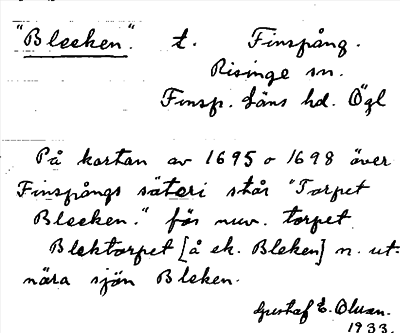 "Blecken". t. Finspång.
Risinge sn.
Finsp. läns hd. Ögl
På kartan av 1695 o 1698 över
Finspångs säteri står "Torpet
Blecken." för nuv. torpet
Blektorpet [å ek. Bleken] n. ut-
nära sjön Bleken.
Gustaf E. Olsson.
1933.